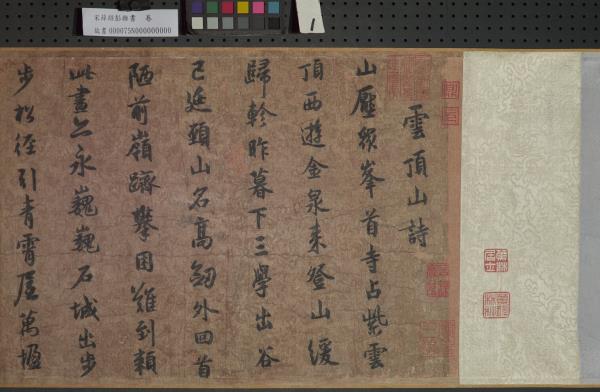 宋薛紹彭雜書 卷
故書000075N000000000
1
雲頂山詩
山壓眾峯首寺占紫雲
頂西遊金泉來登山緩
歸軫昨暮下三學出谷
已延頸山名高劒外回首
陋前嶺躋攀困難到賴
此晝亦永巍巍石城出步
步松徑引青霄屋萬楹